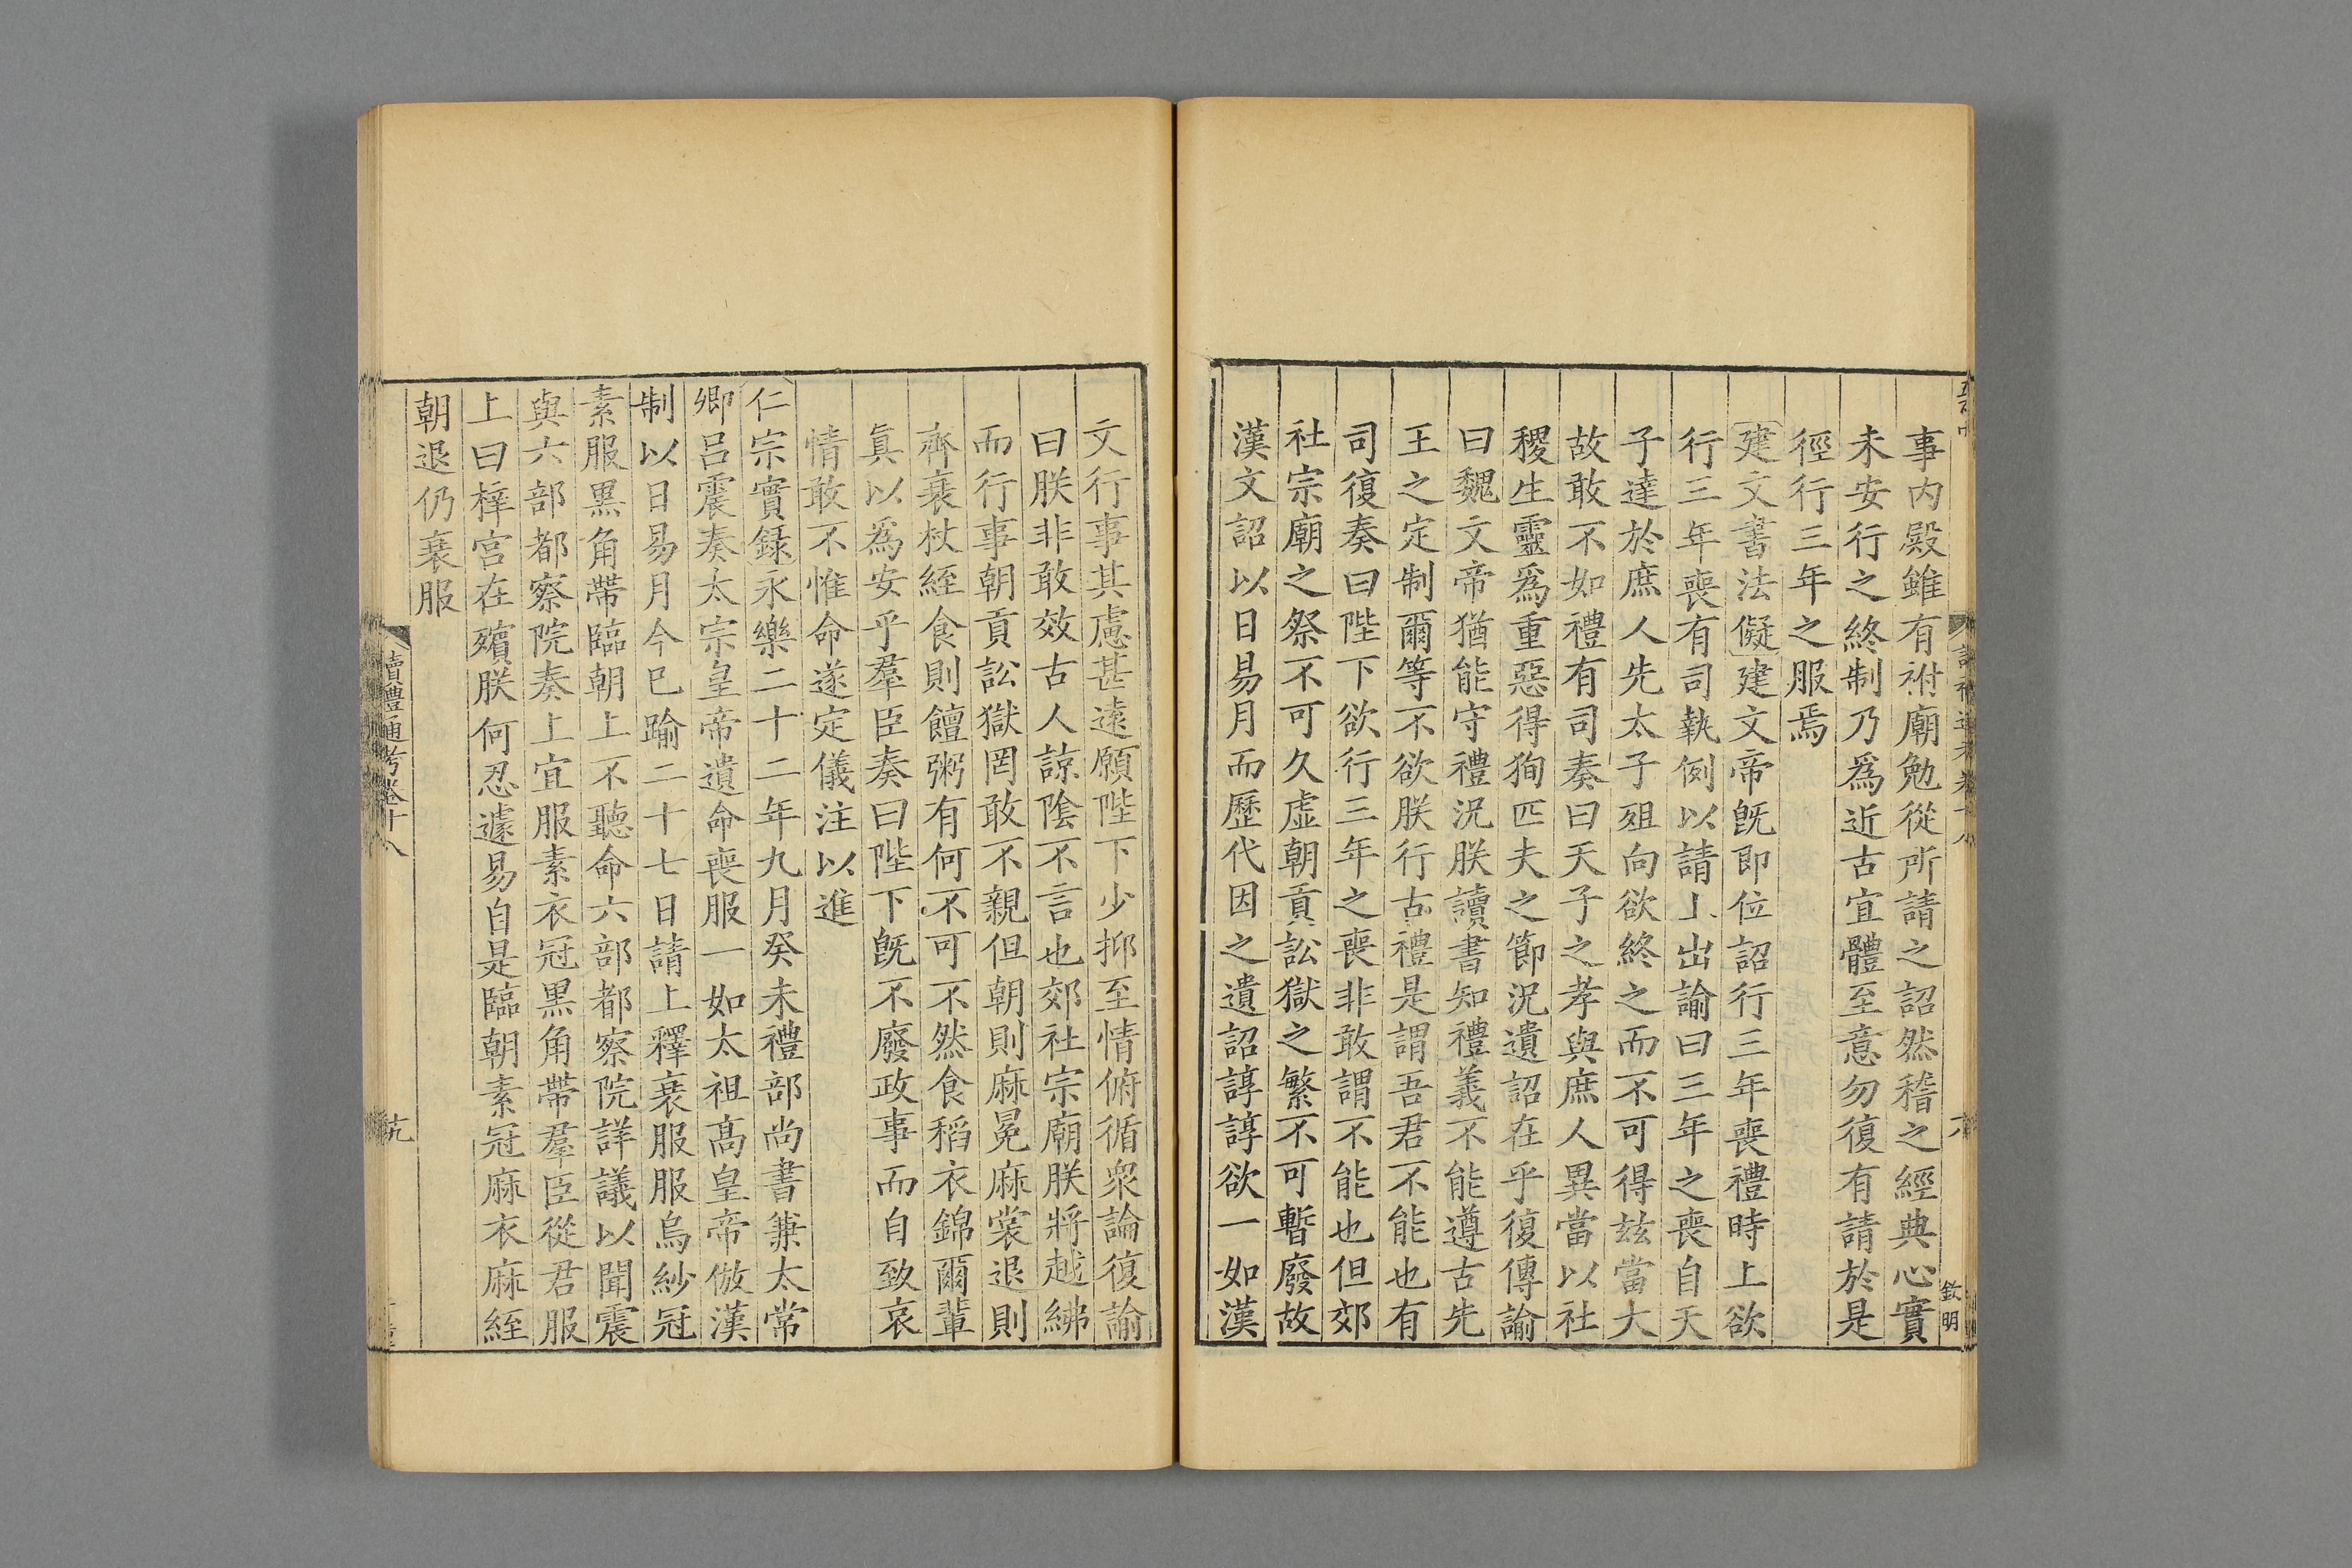 事內殿雖有祔廟勉從所請之詔然稽之經典心實
未安行之終制乃爲近古宜體至意勿復有請於是
徑行三年之服焉
建文書法儗建文帝旣卽位詔行三年喪禮時上欲
行三年喪有司執例以請上出諭曰三年之喪自天
子達於庶人先太子殂向欲終之而不可得玆當大
故敢不如禮有司奏曰天子之孝與庶人異當以社
稷生靈爲重惡得狥匹夫之節況遺詔在乎復傳諭
曰魏文帝猶能守禮況朕讀書知禮義不能遵古先
王之定制爾等不欲朕行古禮是謂吾君不能也有
司復奏曰陛下欲行三年之喪非敢謂不能也但郊
社宗廟之祭不可久虛朝貢訟獄之繁不可暫廢故
漢文詔以日易月而歷代因之遺詔諄諄欲一如漢
文行事其慮甚遠願陛下少抑至情俯循衆論復諭
曰朕非敢效古人諒陰不言也郊社宗廟朕將越紼
而行事朝貢訟獄罔敢不親但朝則麻冕麻裳退則
齊衰杖絰食則饘粥有何不可不然食稻衣錦爾輩
眞以爲安乎羣臣奏曰陛下旣不廢政事而自致哀
情敢不惟命遂定儀注以進
仁宗實錄永樂二十二年九月癸未禮部尚書兼太常
卿呂震奏太宗皇帝遺命喪服一如太祖高皇帝倣漢
制以日易月今已踰二十七日請上釋衰服服烏紗冠
素服黑角帶臨朝上不聽命六部都察院詳議以聞震
與六部都察院奏上宜服素衣冠黑角帶羣臣從君服
上曰梓宮在殯朕何忍遽易自是臨朝素冠麻衣麻絰
朝退仍衰服
讀禮通考卷十八
九
釹明